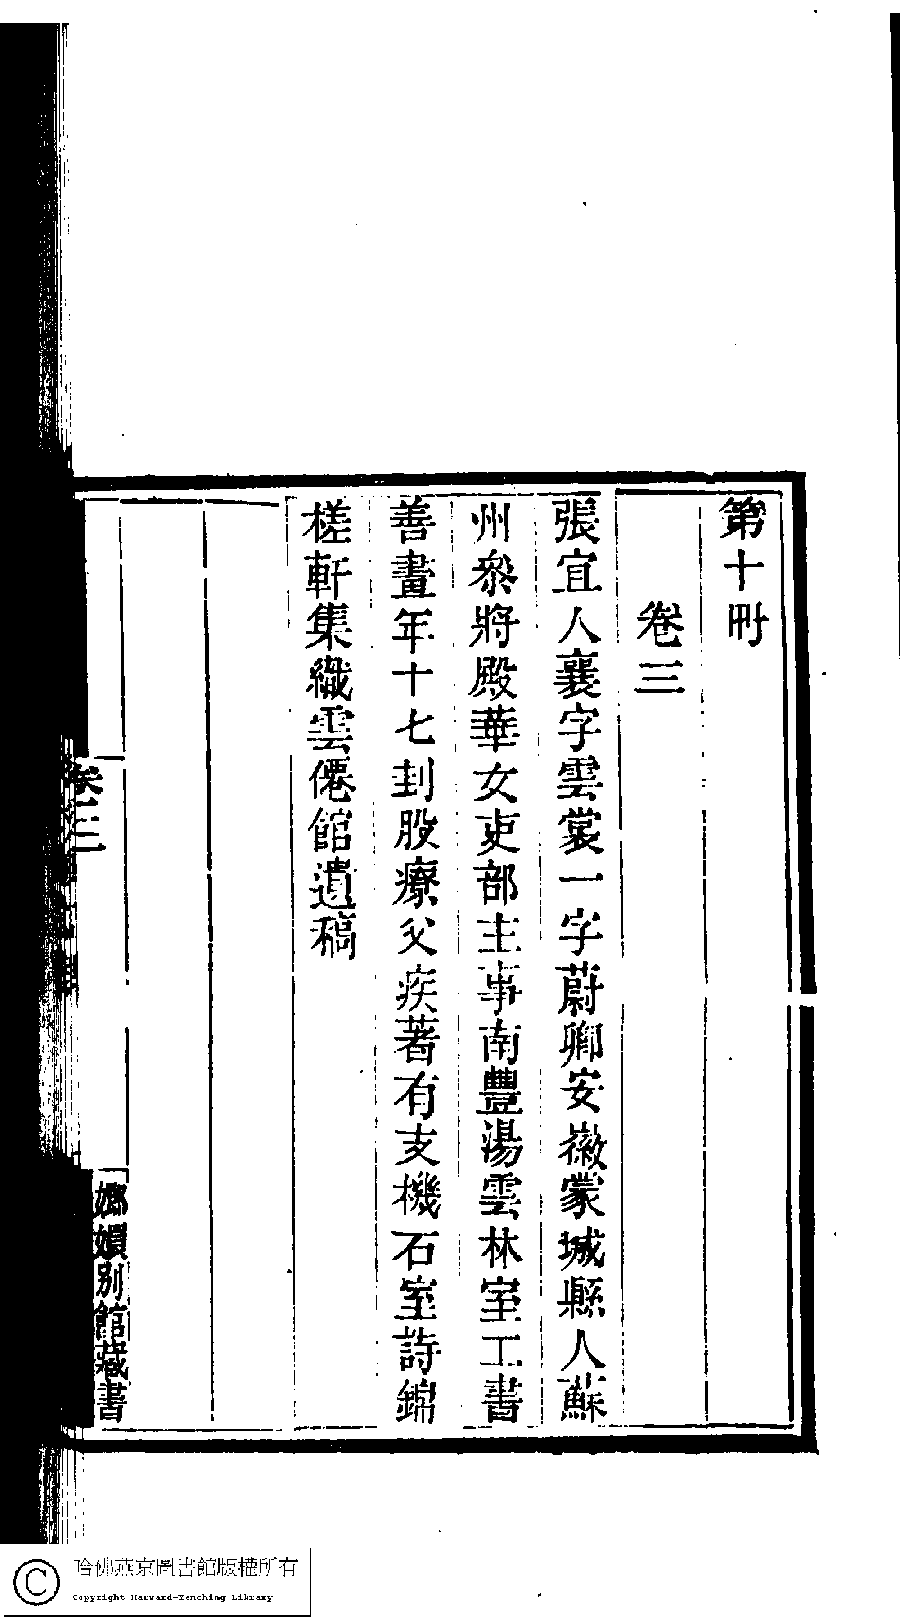 第十冊
卷三
張宜人襄字雲裳一字蔚卿安徽蒙城縣人蘇
州叅將殿華女吏部主事南豐湯雲林室工書
善畫年十七刲股療父疾著有支機石室詩錦
槎軒集織雲僊館遺稿
卷三
嫏嬛別館藏書
哈佛燕京圖書館版權所有
Copyright Harvard-Yenching Library